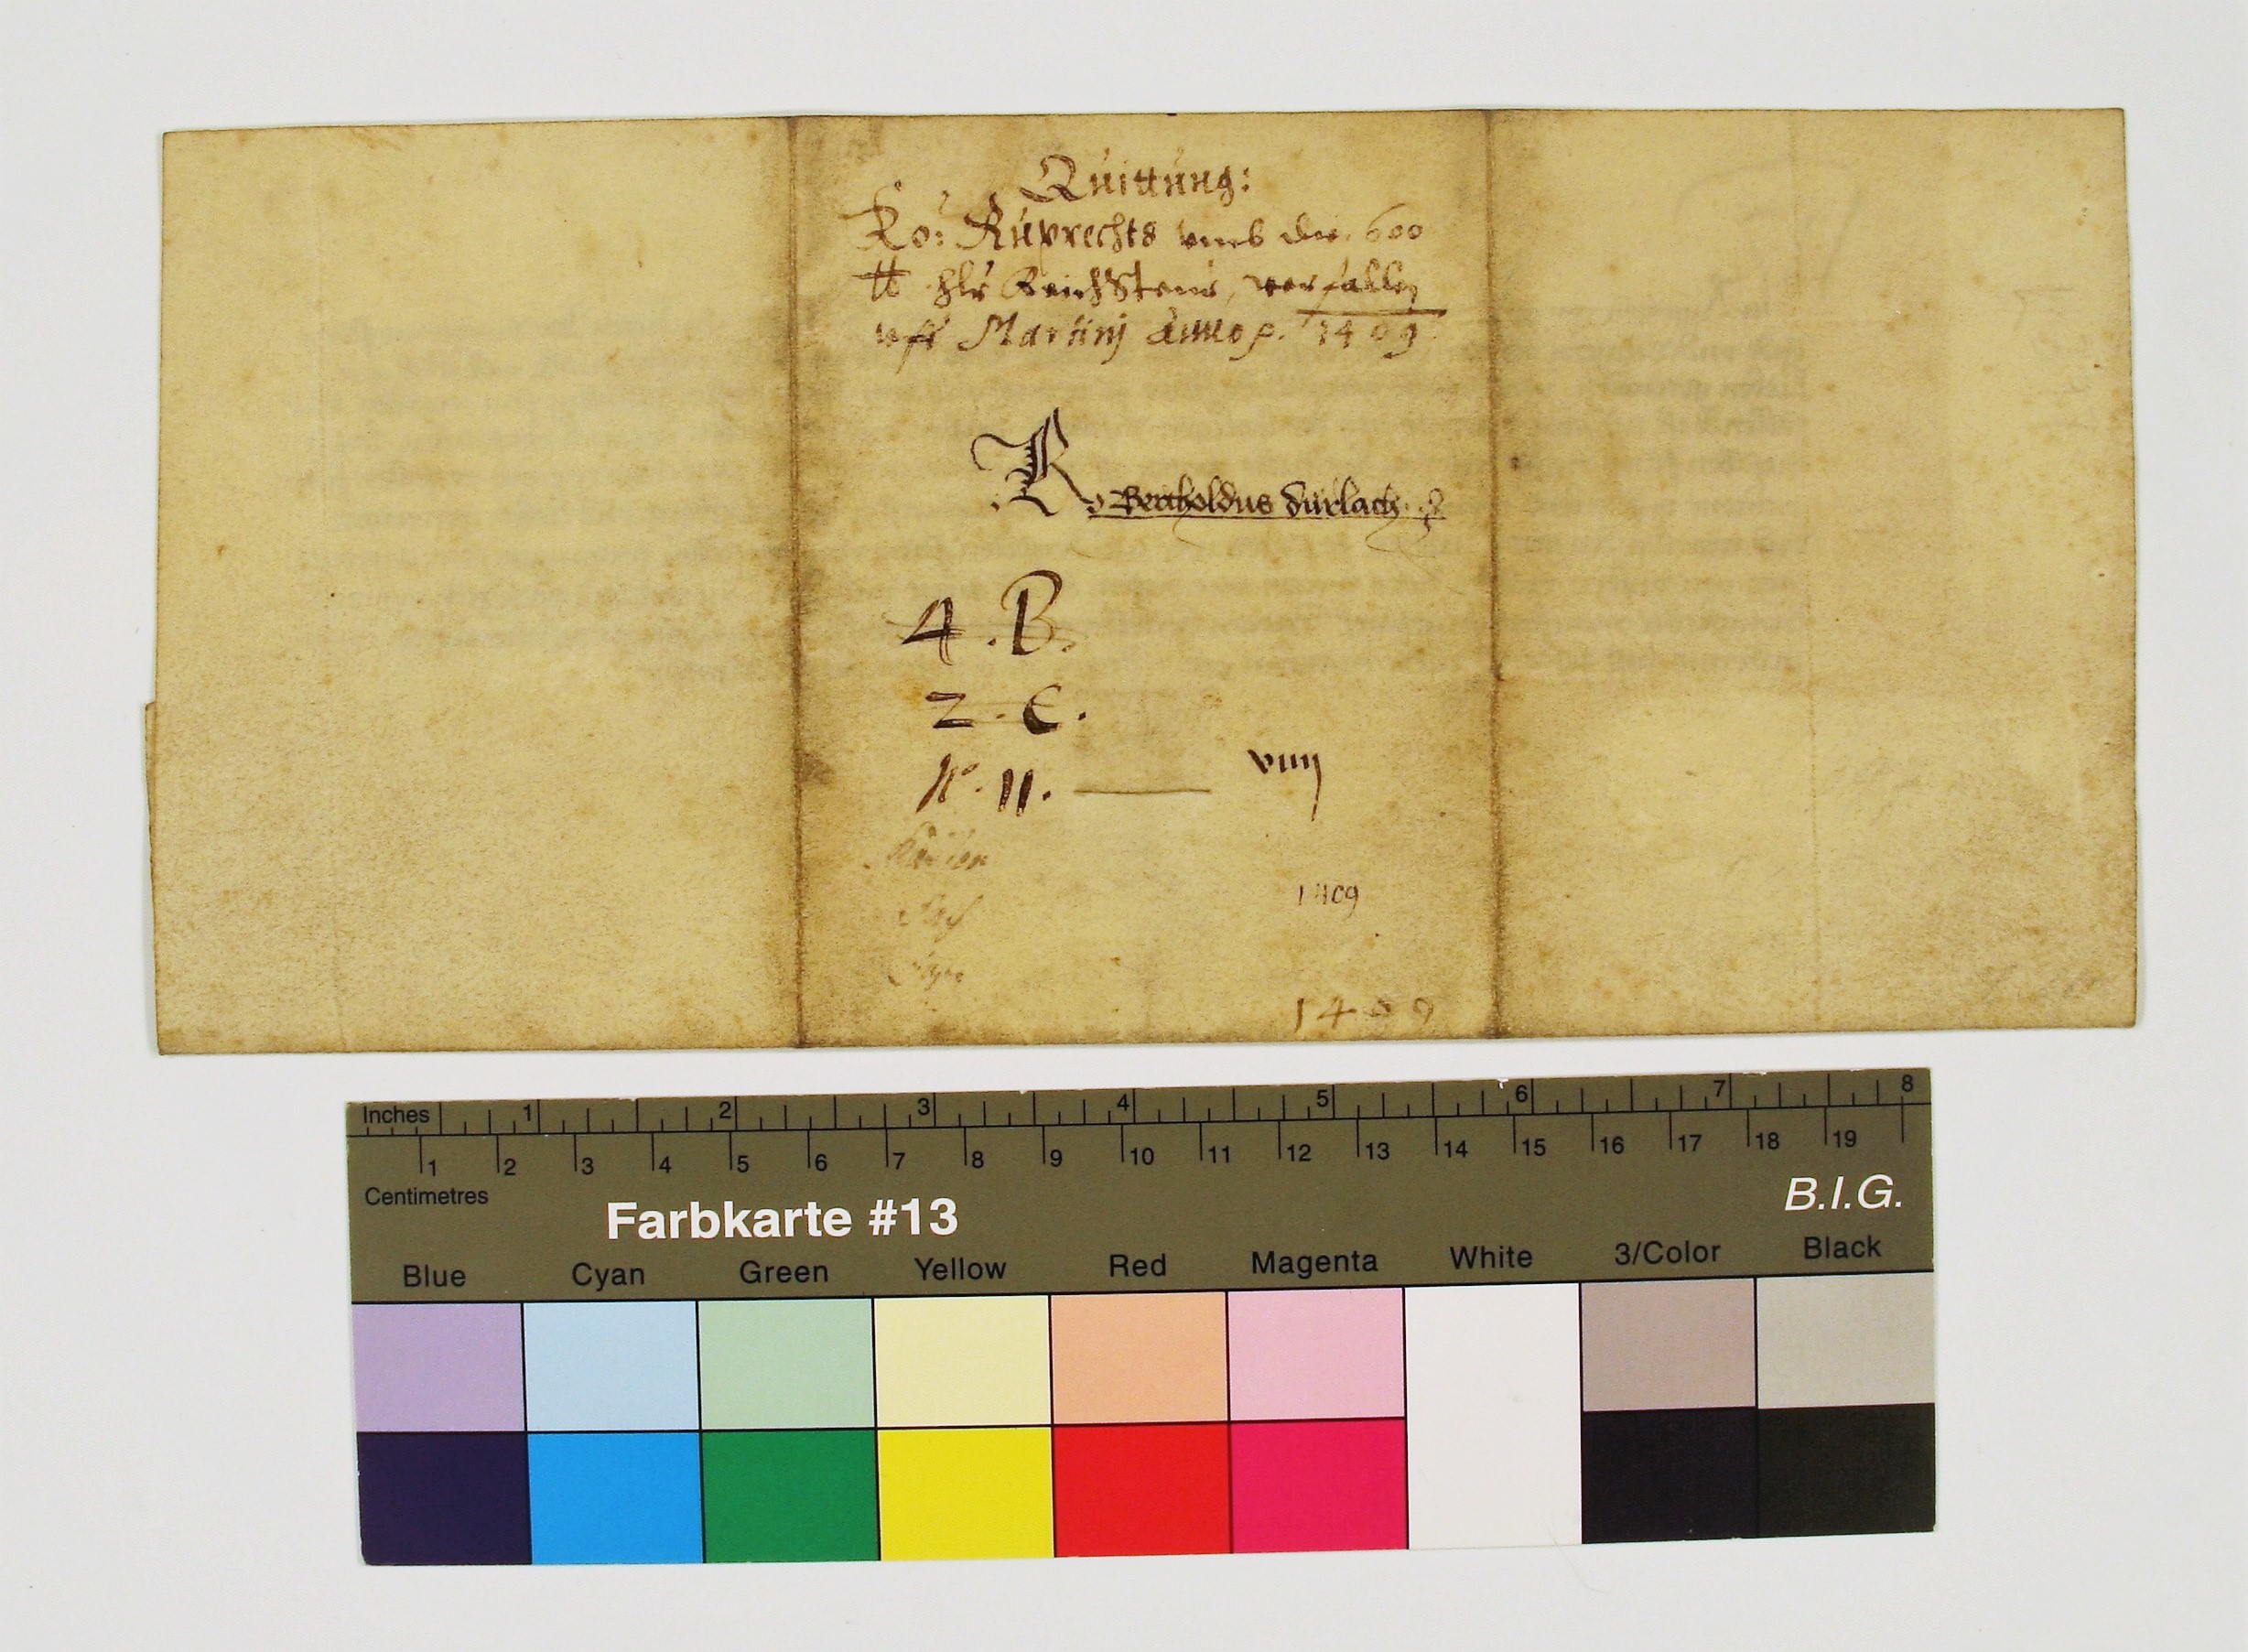 Quittung:
Kö: Ruprechts umb die 600
℔ hlr Reichsteur, verfallen
uff Martinj Anno p. 1409.
R Bertholdus durlach
4. B.
2. C.
No. 11. viiij
1409
1409
Inches 1 2 3 4 5 6 7 8
1 2 3 4 5 6 7 8 9 10 11 12 13 14 15 16 17 18 19
Centimetres
Farbkarte #13 B.I.G.
Blue Cyan Green Yellow Red Magenta White 3/Color Black